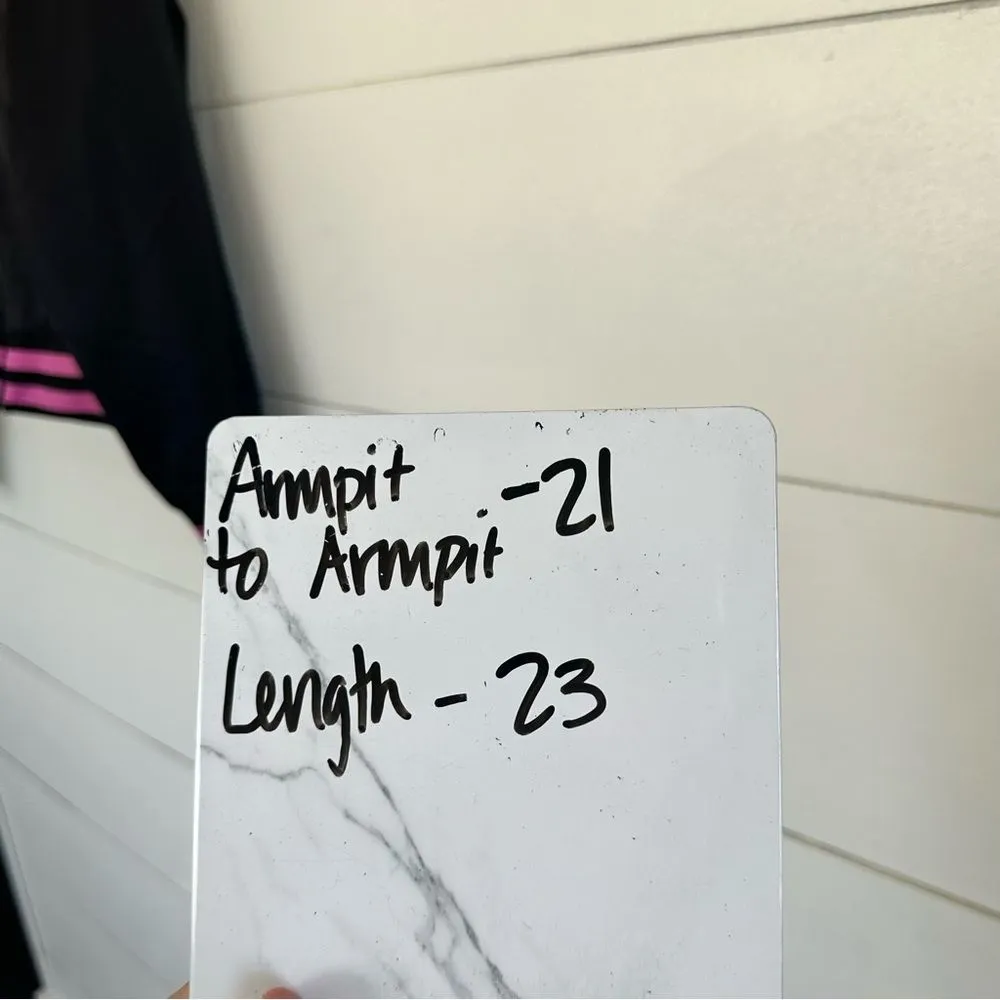 Armpit -21
to Armpit
Length - 23